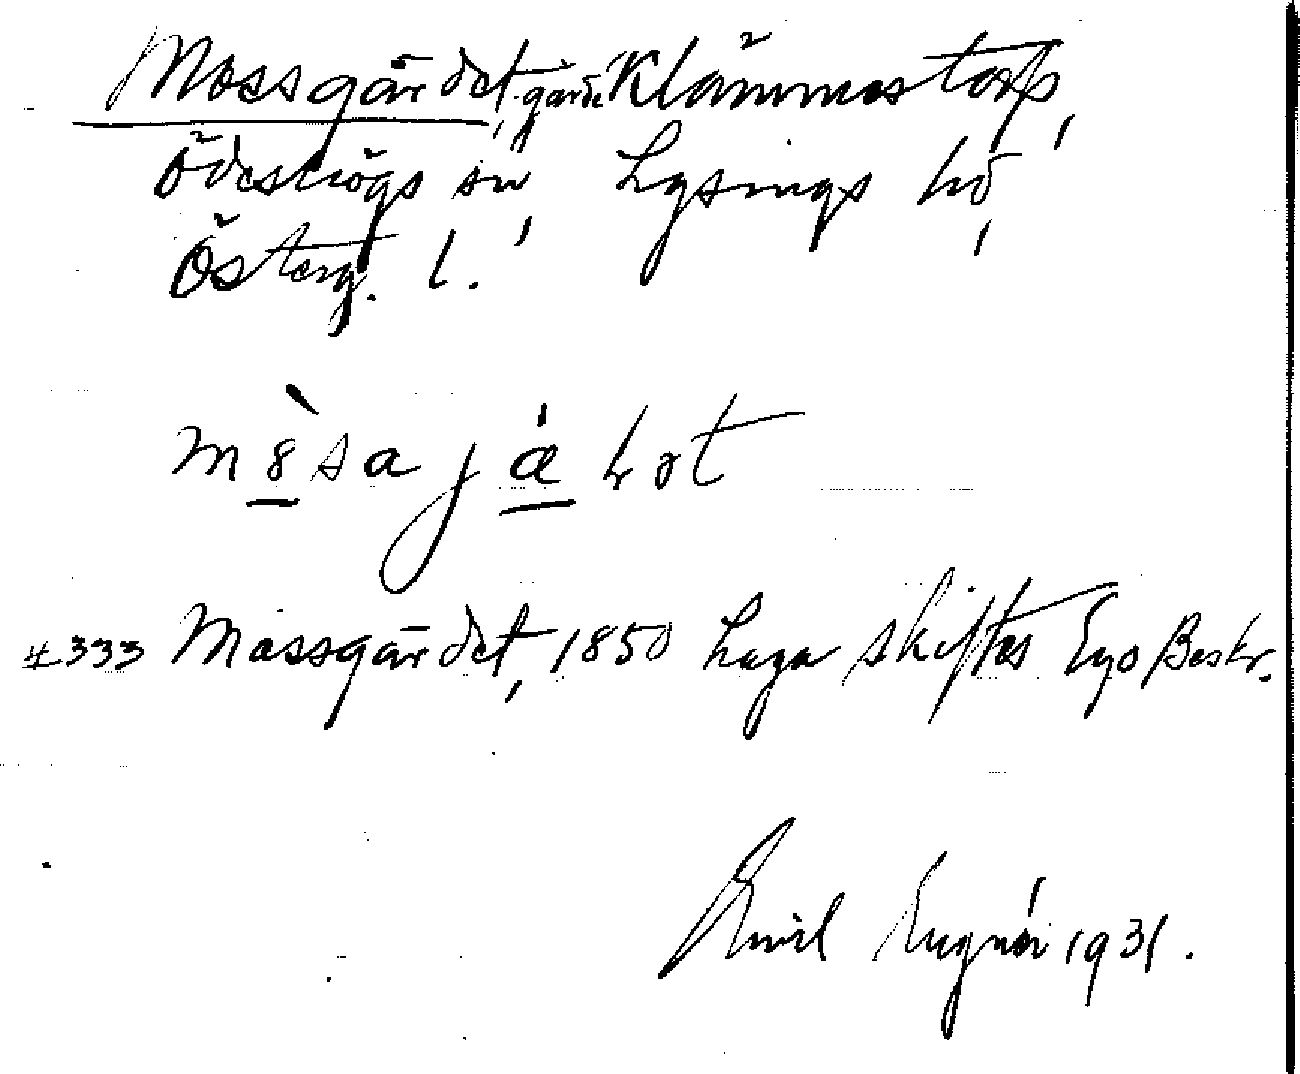 Mossgärdet, gård Klämmestorp,
Ödeshögs sn, Lysings hd,
Österg. l.
#333 Mossgärdet, 1850 Laga skiftes Ego Beskr.
Emil 1931.